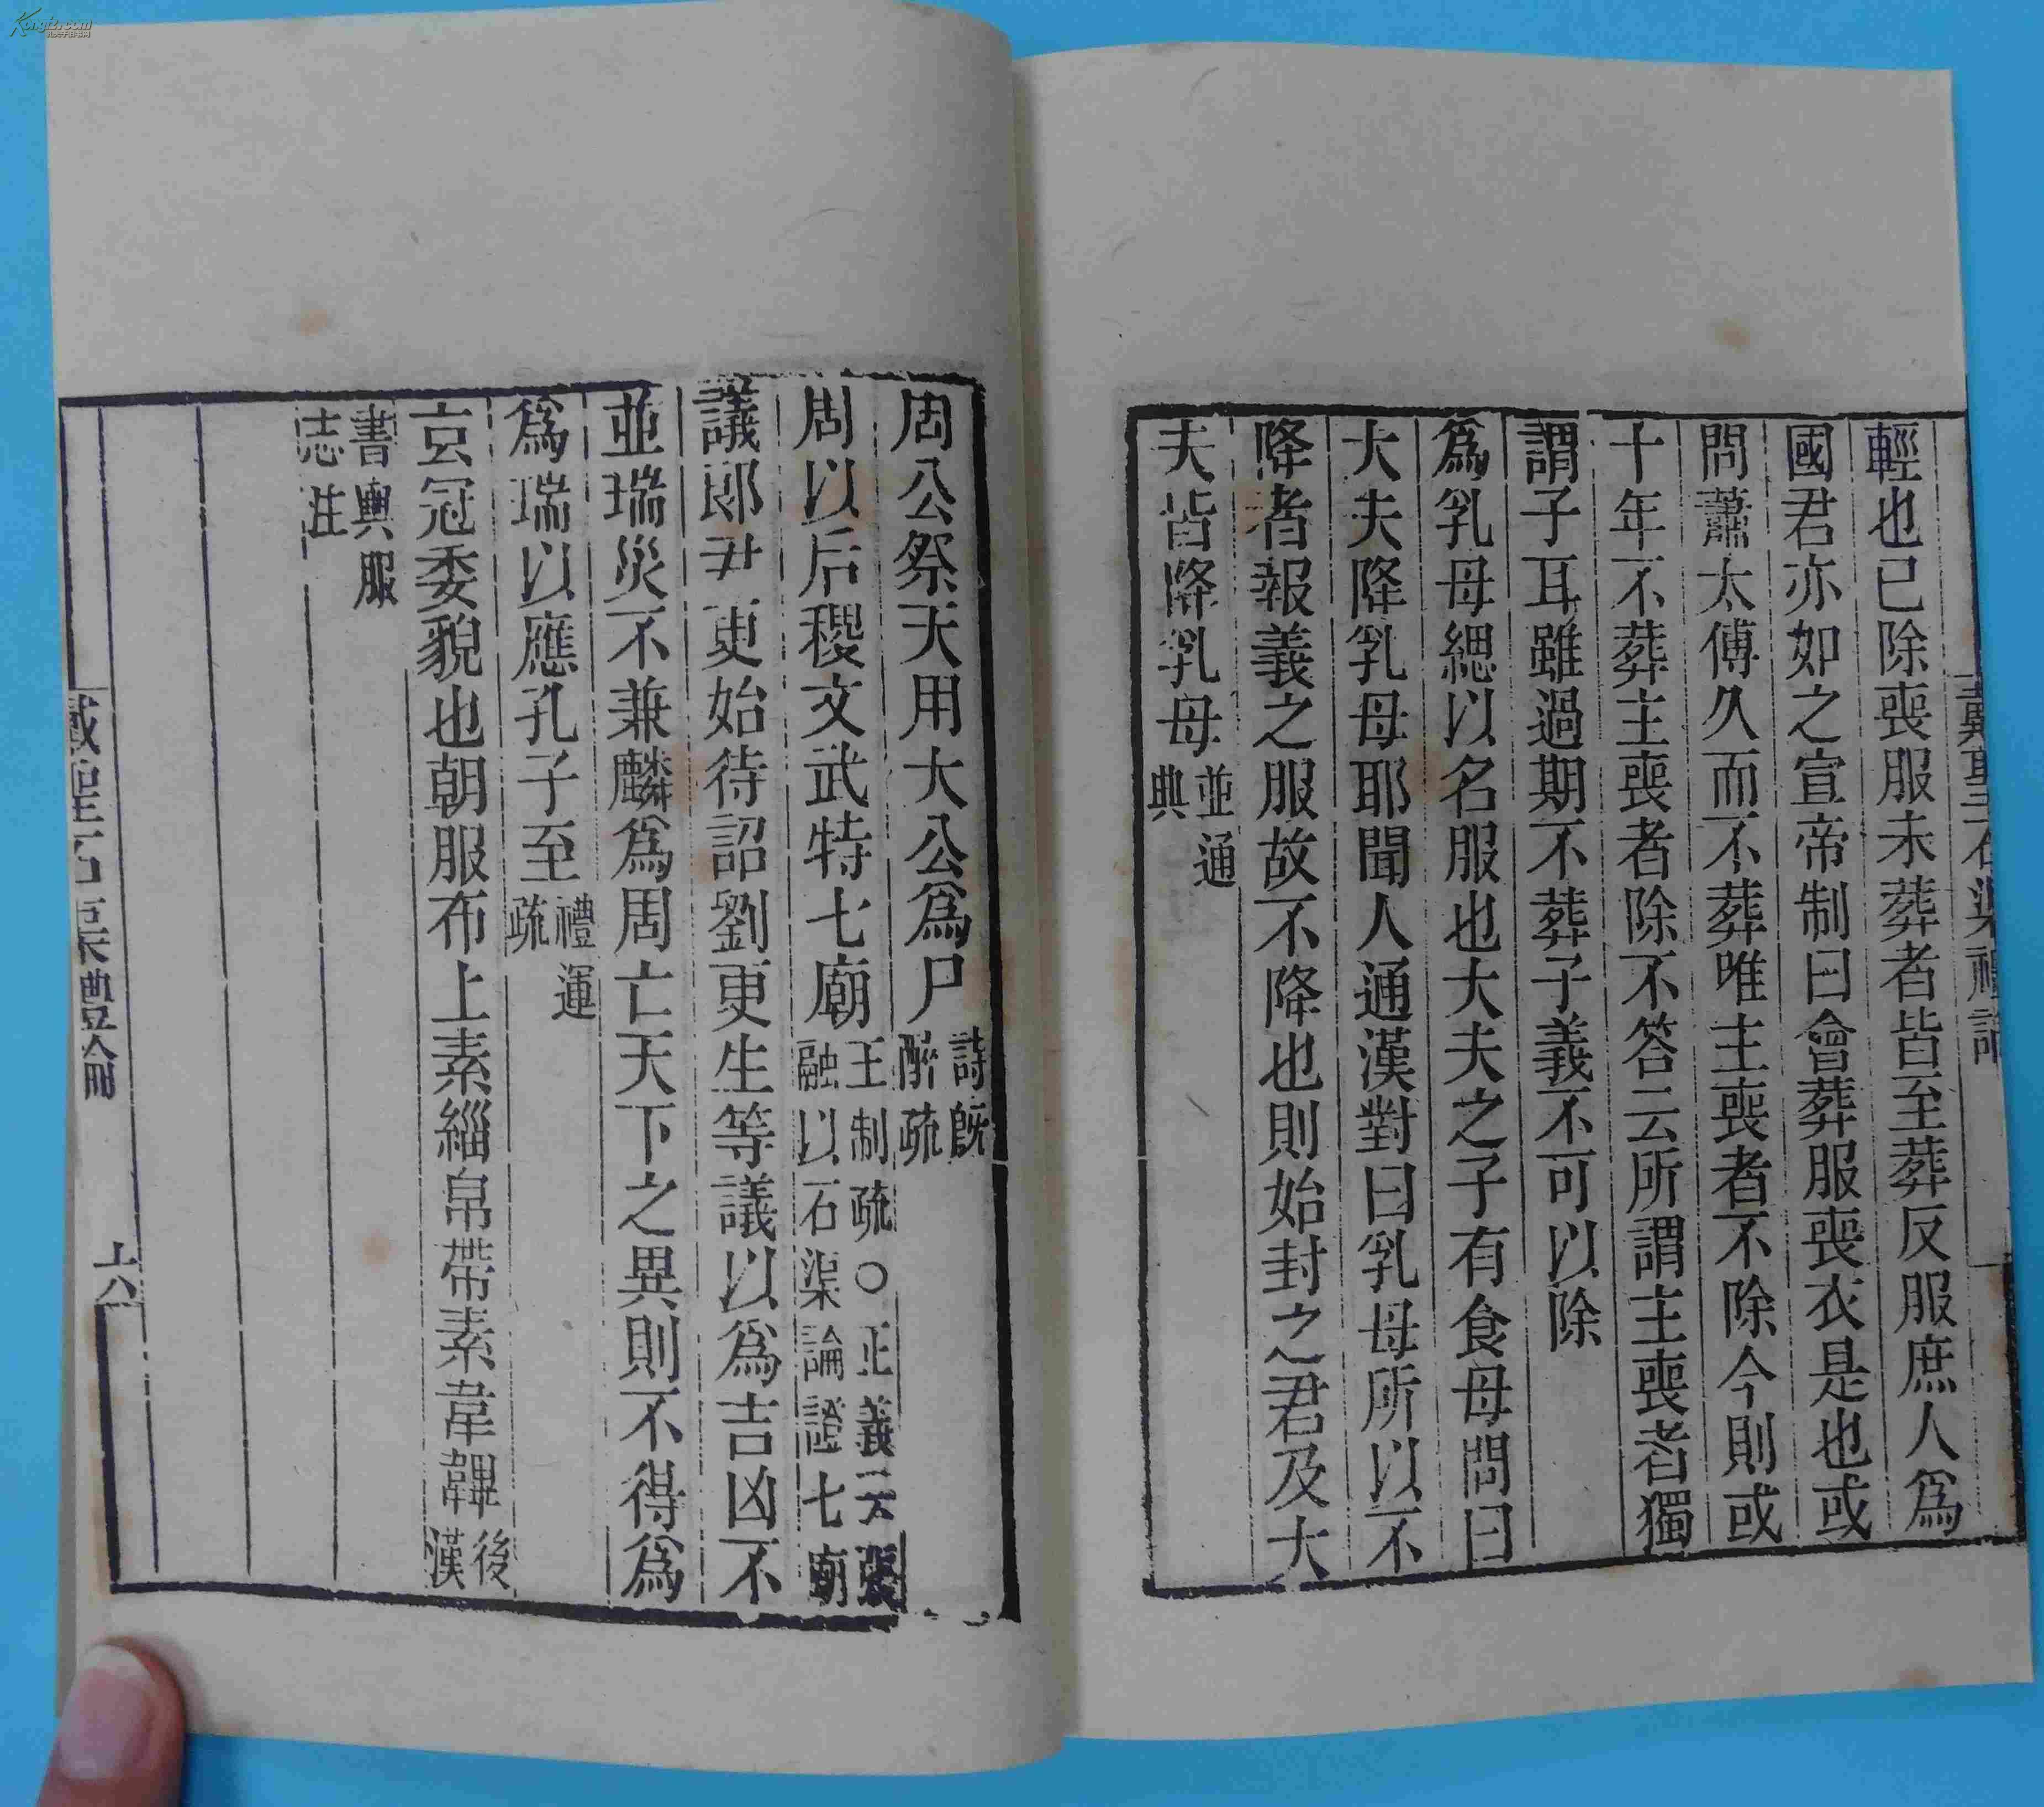 輕也已除喪服未葬者皆至葬反服庶人爲
國君亦如之宣帝制曰會葬服喪衣是也或
問蕭太傅久而不葬唯主喪者不除今則或
十年不葬主喪者除不答云所謂主喪者獨
謂子耳雖過期不葬子義不可以除
爲乳母緦以名服也大夫之子有食母問曰
大夫降乳母耶聞人通漢對曰乳母所以不
降者報義之服故不降也則始封之君及大
夫皆降乳母並通
典
周公祭天用大公爲尸詩旣
醉疏
周以后稷文武特七廟王制疏○正義云張
融以石渠論證七廟
議郎尹更始待詔劉更生等議以爲吉凶不
並瑞災不兼麟爲周亡天下之異則不得爲
爲瑞以應孔子至禮運
疏
玄冠委貌也朝服布上素緇帛帶素韋韠後
漢
書輿服
志注
戴聖石渠禮論
Kongfz.com